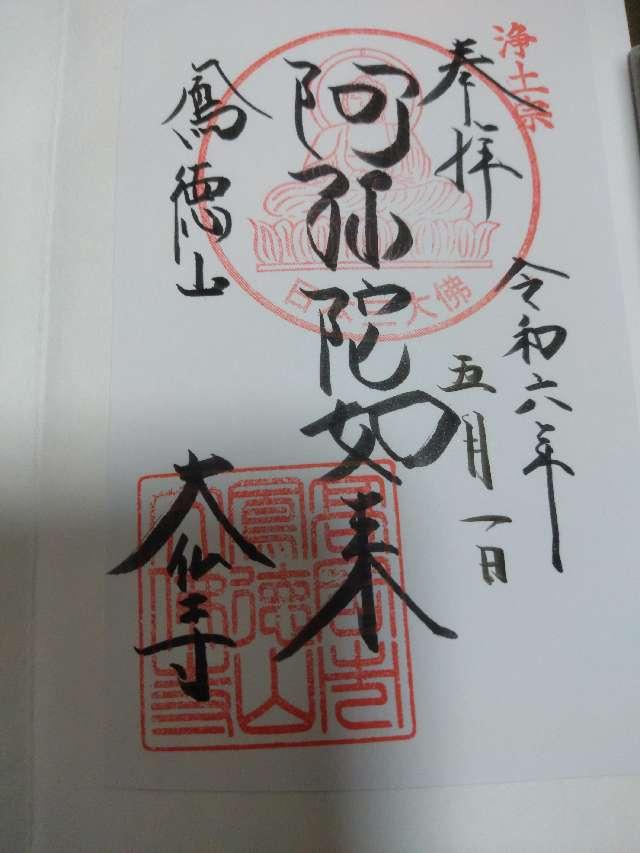 浄土宗
奉拝
令和六年
五月一日
阿弥陀如来
日本三大佛
鳳徳山
大仏寺
鳳徳山
大佛寺